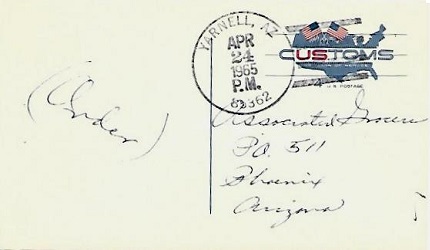 YARNELL, AZ
APR
24
1965
P.M.
85362
CUSTOMS
U.S. POSTAGE
4
(Order)
Associated Grocers
P.O. 511
Phoenix
Arizona